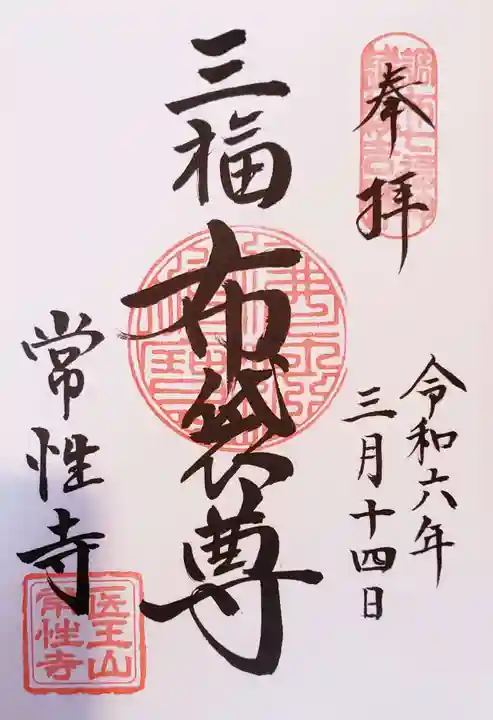 奉拝
令和六年
三月十四日
三福
布袋尊
常性寺
医王山
常性寺